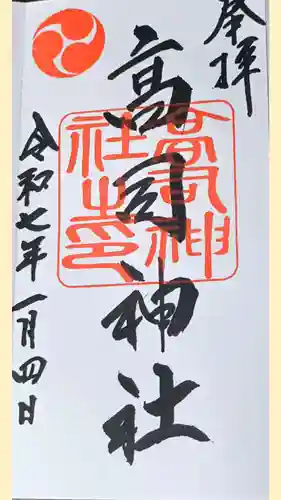 奉拝
高司神社
高司神
社之印
令和七年一月四日